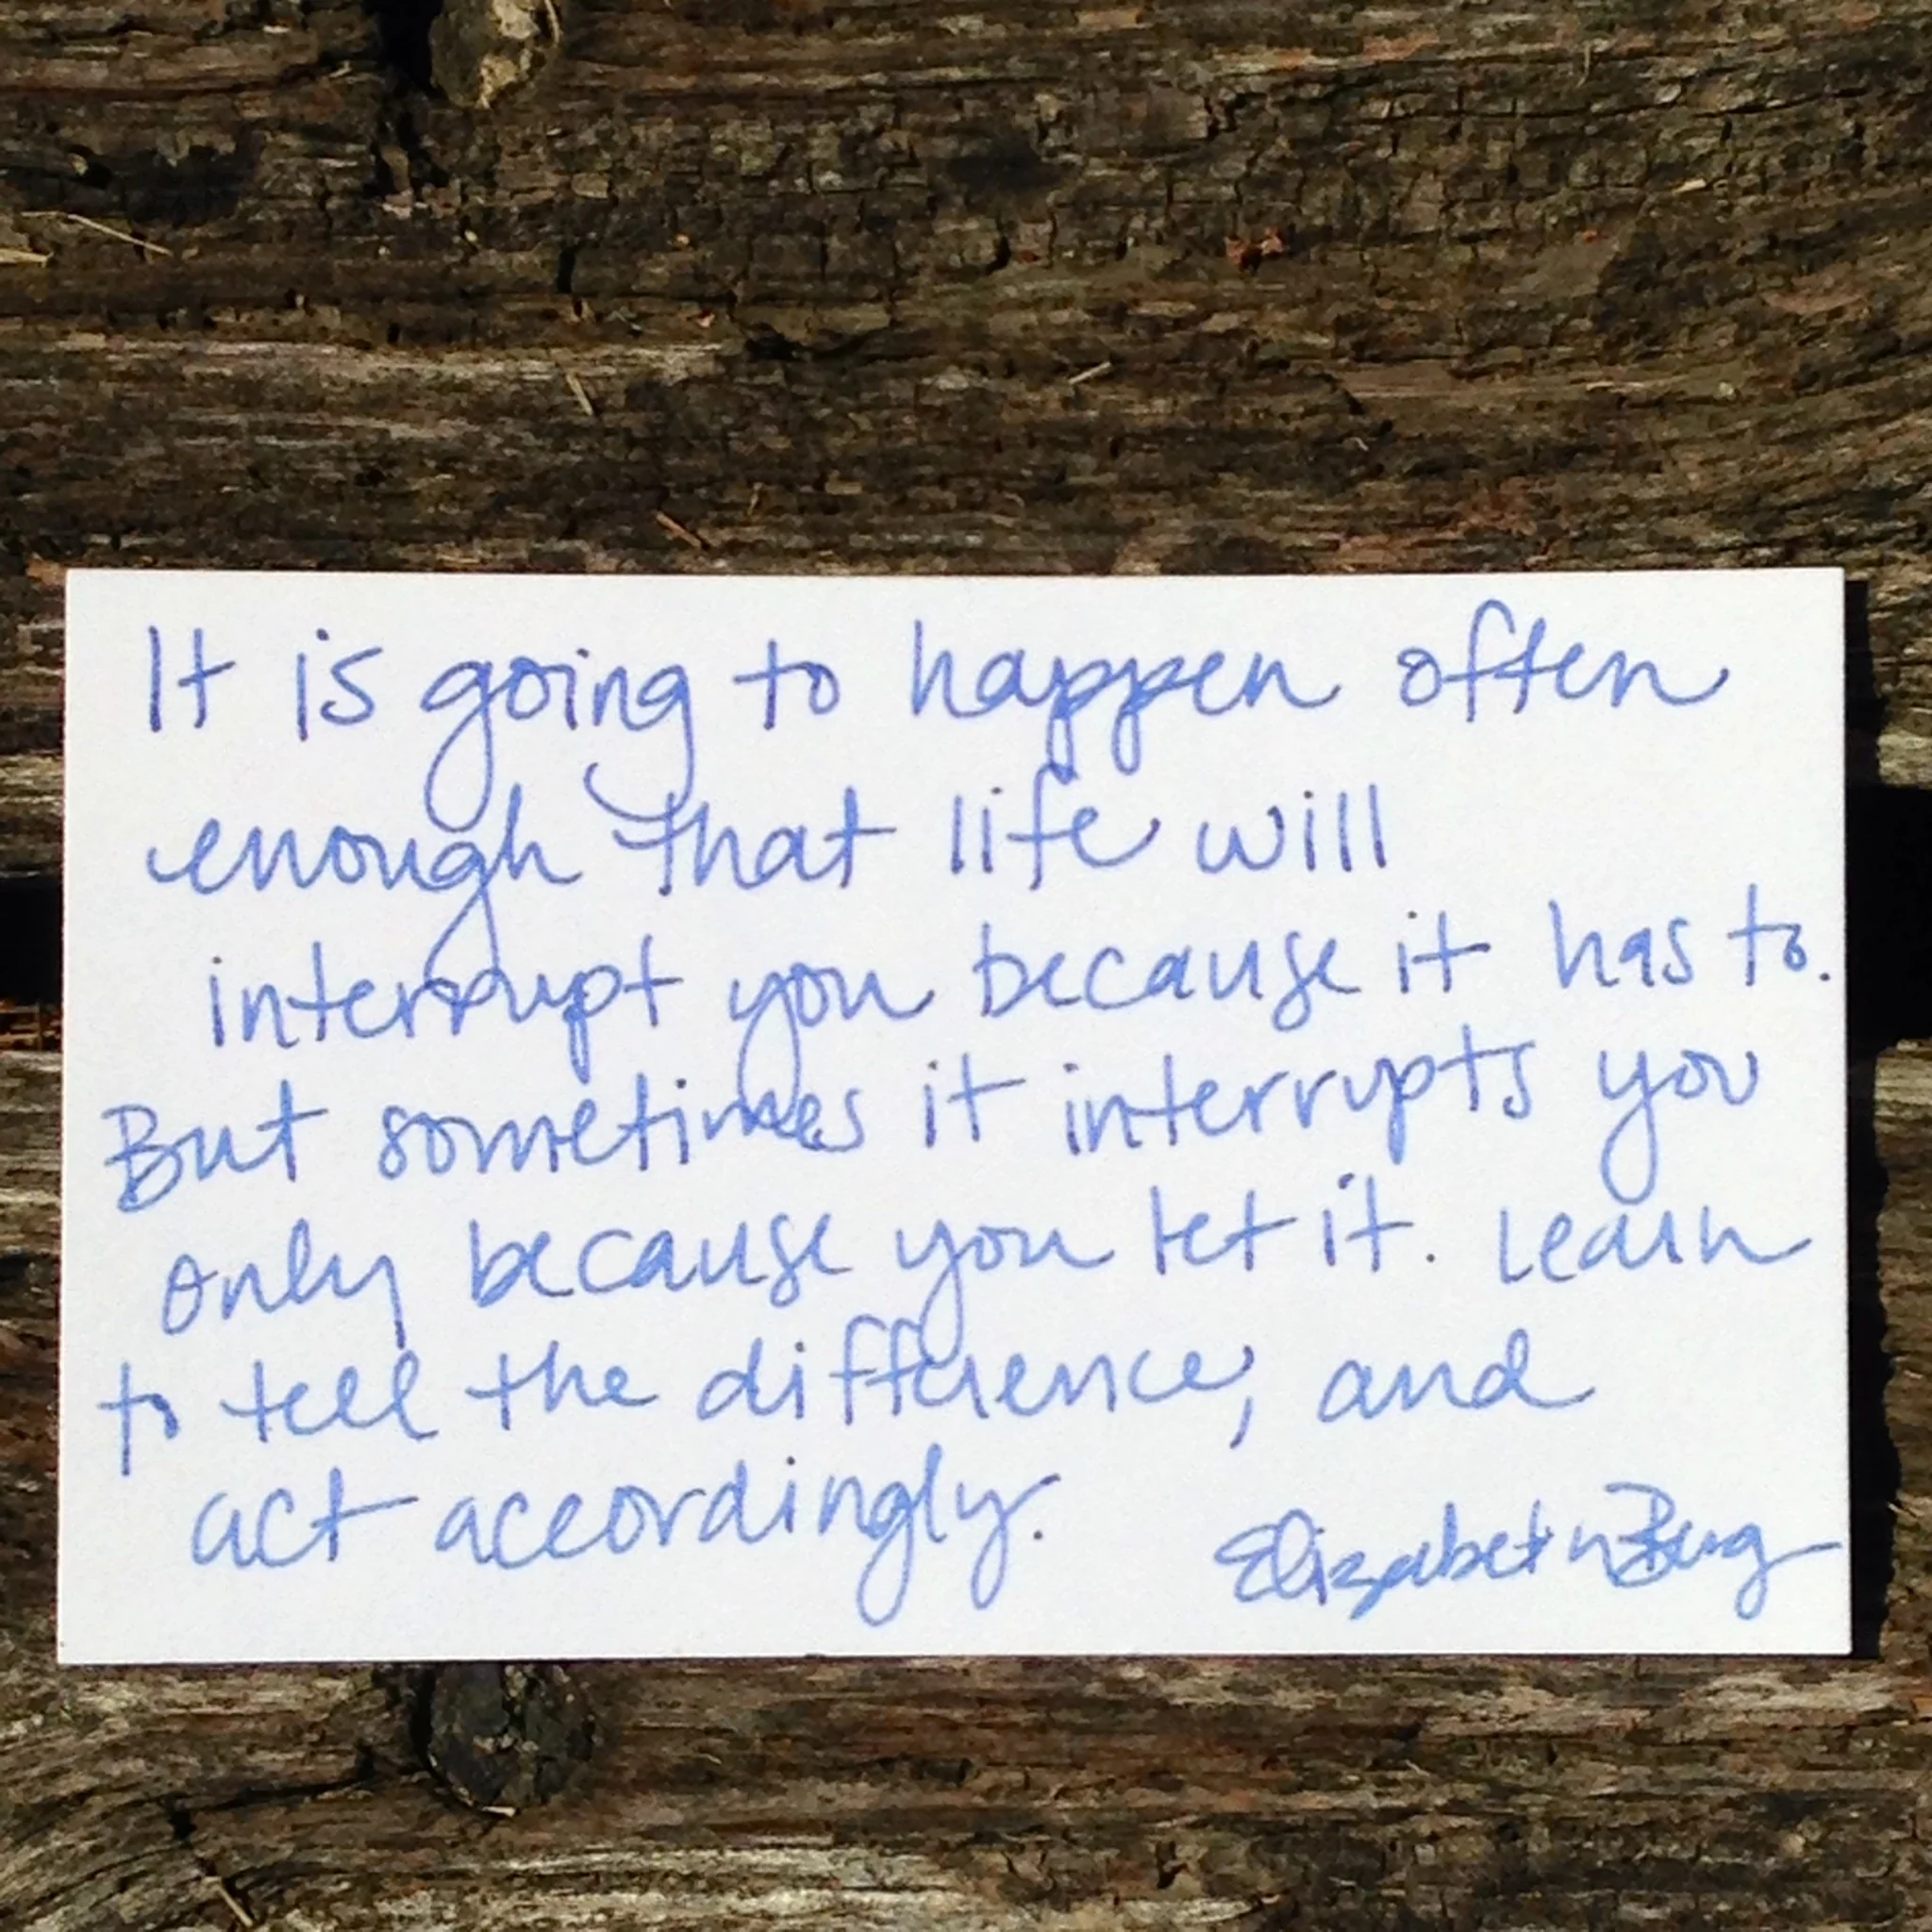 It is going to happen often
enough that life will
interrupt you because it has to.
But sometimes it interrupts you
only because you let it. Learn
to tell the difference, and
act accordingly.
Elizabeth Bug